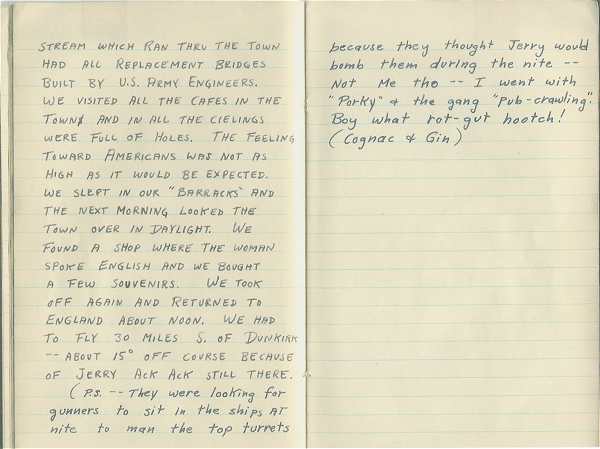 STREAM WHICH RAN THRU THE TOWN
HAD ALL REPLACEMENT BRIDGES
BUILT BY U.S. ARMY ENGINEERS.
WE VISITED ALL THE CAFES IN THE
TOWN AND IN ALL THE CIELINGS
WERE FULL OF HOLES. THE FEELING
TOWARD AMERICANS WAS NOT AS
HIGH AS IT WOULD BE EXPECTED.
WE SLEPT IN OUR "BARRACKS" AND
THE NEXT MORNING LOOKED THE
TOWN OVER IN DAYLIGHT. WE
FOUND A SHOP WHERE THE WOMAN
SPOKE ENGLISH AND WE BOUGHT
A FEW SOUVENIRS. WE TOOK
OFF AGAIN AND RETURNED TO
ENGLAND ABOUT NOON. WE HAD
TO FLY 30 MILES S. OF DUNKIRK
-- ABOUT 15° OFF COURSE BECAUSE
OF JERRY ACK ACK STILL THERE.
(P.S. -- They were looking for
gunners to sit in the ships AT
nite to man the top turrets
because they thought Jerry would
bomb them during the nite --
Not Me tho -- I went with
"Porky" & the gang "pub-crawling".
Boy what rot-gut hootch!
(Cognac & Gin)